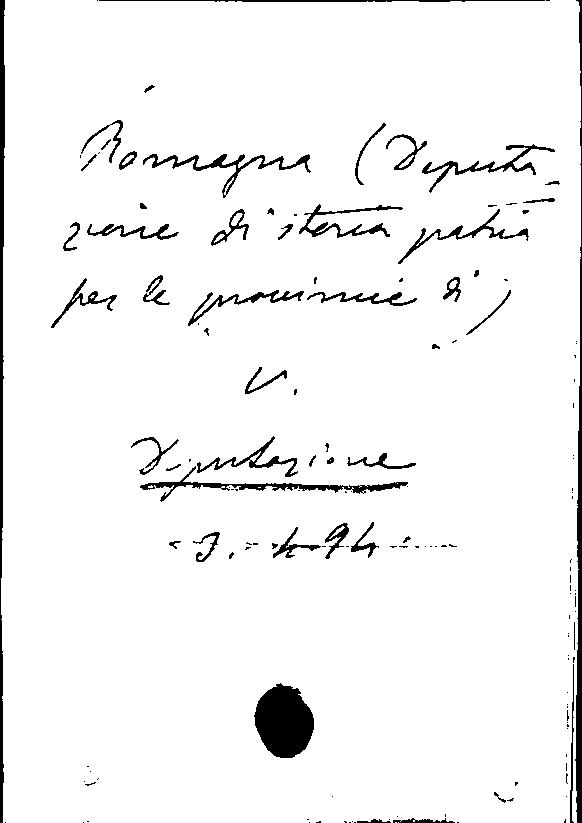 Romagna (Deputa-
zione di storia patria
per le provincie di)
V.
Deputazione